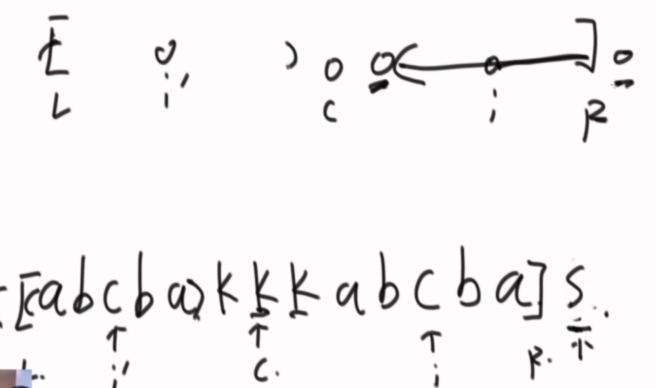 [ ( o ) o o ( o ] o
L i' c i R
[ ( a b c b a ) k k k a b c b a ] s .
↑ ↑ ↑ ↑
L . i' c . i R .